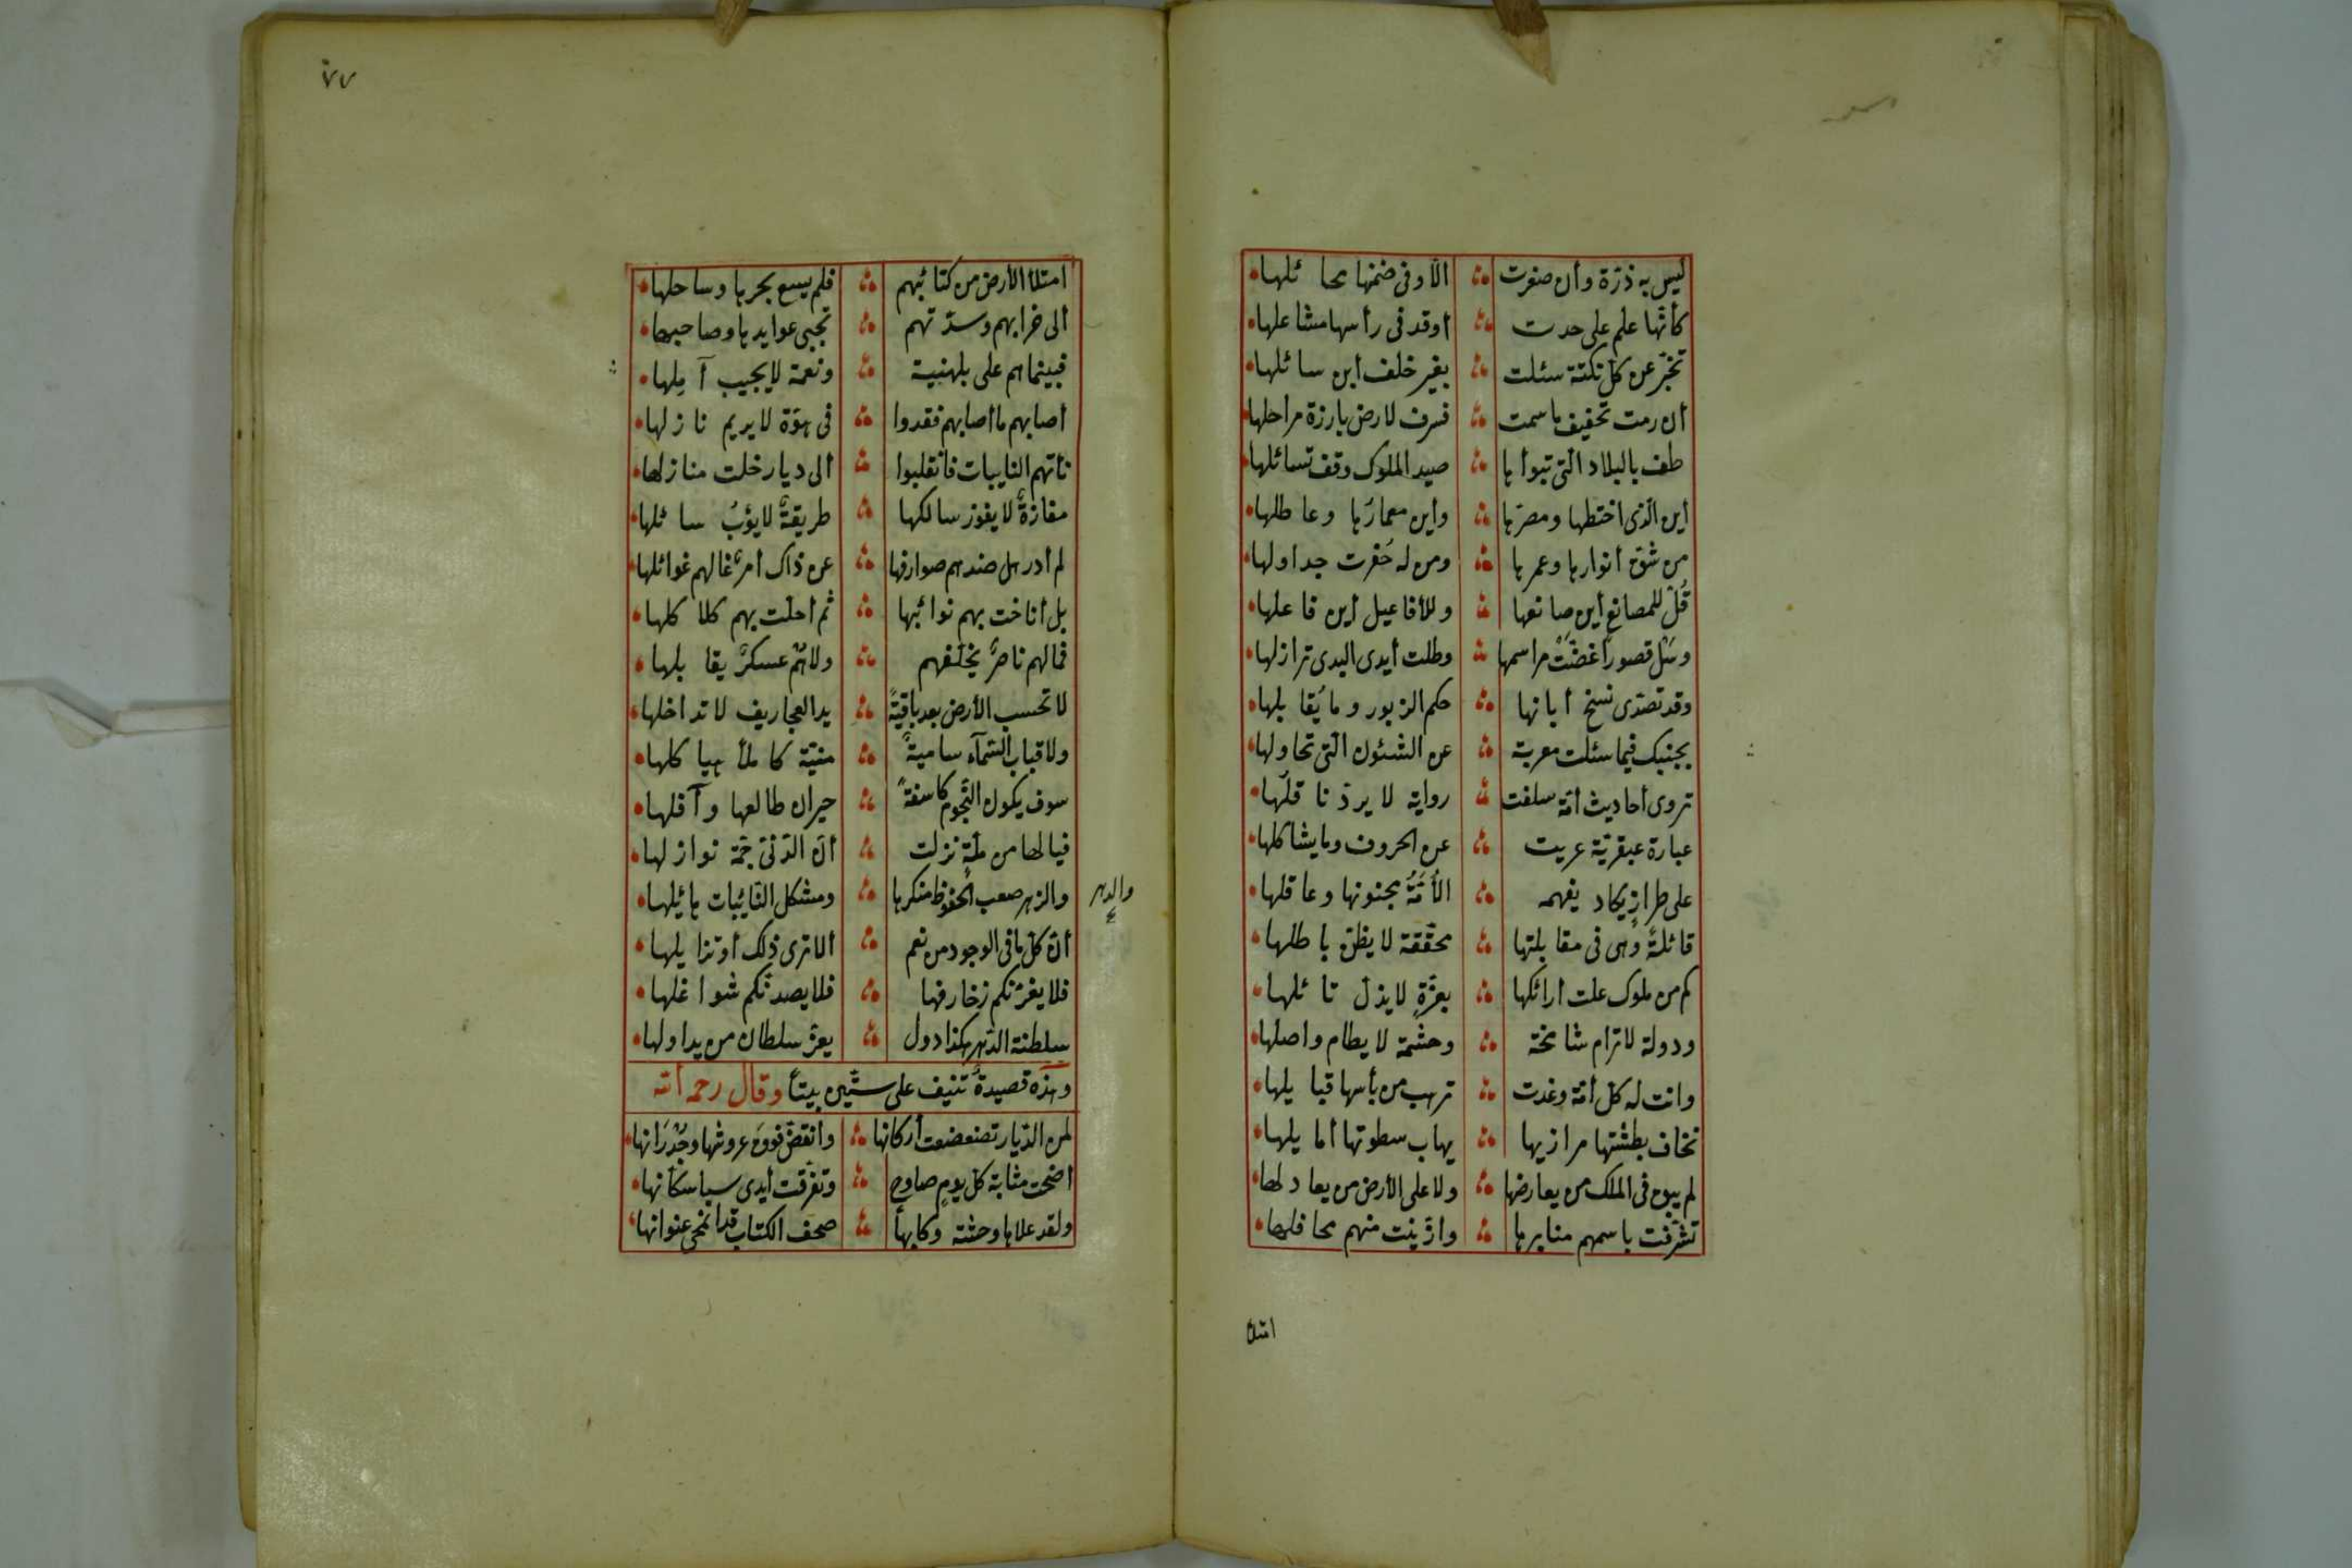 ليس به ذرّة وأن صغرت ألّا وفى ضمنها محا ئلها
كأنّها علم على حدت أوقد فى رأسها مشاعلها
تخبّر عن كل نكتة سئلت بغير خلف أبن سائلها
أن رمت تخفيف ما سمت فسرف لارض بارزة مراحلها
طف بالبلاد الّتى تبوأها صيد الملوك وقف تسائلها
أين الّذى اختطها ومصرها وأين معمارها وعاطلها
من شق أنوارها وعمرها ومن له حفرت جداولها
قل للمصانع أين صانعها وللأفاعيل أين فاعلها
وسل قصوراً غضّت مراسمها وطلت أيدى البدى ترازلها
وقد تصدّى نسخ أبانها حكم الزبور وما يُقابلها
بجنبك فيما سئلت معربة عن الشئون الّتى تحاولها
تروى أحاديث أمّة سلفت رواية لا يردّ ناقلها
عبارة عبقريّة عريت عن الحروف وما يشاكلها
على طراز يكاد يفهمه الأمّة مجنونها وعاقلها
قائلةً وهى فى مقابلتها محقّقة لا يظنّ باطلها
كم من ملوك علت أرائكها بعزّةٍ لا يذل نائلها
ودولة لا ترام شامخة وحشمة لا يطام واصلها
وانت له كل أمّة وغدت ترهب من بأسها قبايلها
تخاف بطشتها مرازيها يهاب سطوتها أمايلها
لم يبق فى الملك من يعارضها ولا على الأرض من يعادلها
تشرّفت باسمهم منابرها وازّينت منهم محافلها
امتلأ
٧٧
امتلأ الأرض من كتائبهم فلم يسع بحرها وساحلها
ألى خرابهم وسدّتهم تجبى عوايدها وصاحبها
فبينما هم على بلهنية ونعمة لا يجيب آملها
أصابهم ما أصابهم فغدوا فى هوّة لا يريم نازلها
نأتهم النايبات فانقلبوا ألى ديار خلت منازلها
مفازةً لا يفوز سالكها طريقةً لا يؤب سائلها
لم أدر هل صدهم صوارفها عن ذاك أمرٌ غالهم غوائلها
بل أناخت بهم نوائبها ثم أحلّت بهم كلا كلها
فمالهم ناصرٌ يخلّفهم ولا لهم عسكرٌ يقابلها
لا تحسب الأرض بعد باقيةً يد العجاريف لا تداخلها
ولا قباب السّمآء ساميةً منيّة كاملأ هيا كلها
سوف يكون النّجوم كاسفةً حيران طالعها وآفلها
فيالها من لمّة نزلت أن الدّنى جمّة نوازلها
والزهر صعب الحفوظ منكرها ومشكل النّائبات هائيلها
والدهر
أنّ كل ما فى الوجود من نعم ألا ترى ذلك أوتزايلها
فلا يغرّنكم زخارفها فلا يصدنّكم شواغلها
سلطنة الدّهر هكذا دول يعزّ سلطان من يداولها
وهذه قصيدةٌ تنيف على ستّين بيتاً وقال رحمه الله
لمن الدّيار تضعضعت أركانها وانقضّ فوق عروشها وجُدْرَانها
أضحت مثابة كل يومٍ صاوح وتفرّقت أيدى سبا سكانها
ولقد علاها وحشة وكابهاً صحف الكتاب قد انمحى عنوانها